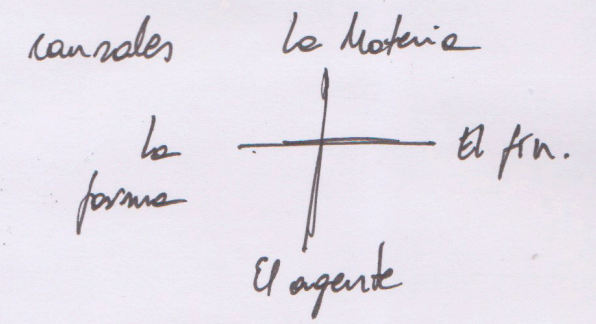 causales
La Materia
La
forma
El fin.
El agente